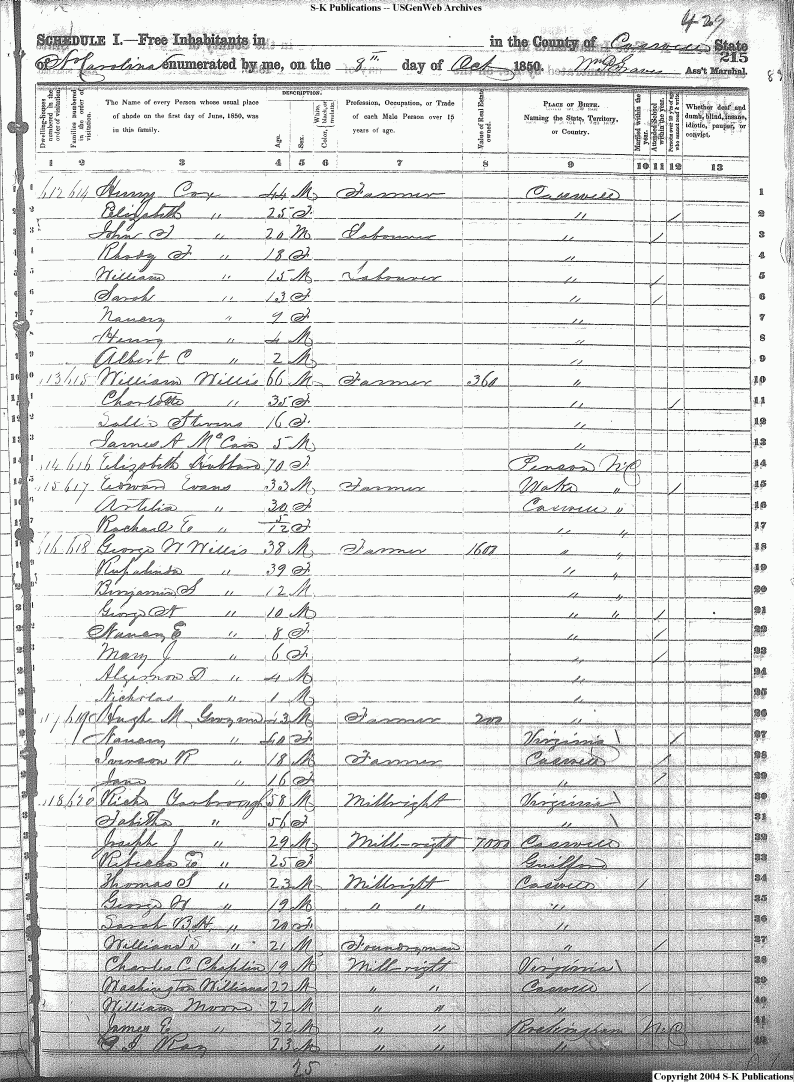 S-K Publications -- USGenWeb Archives
429
SCHEDULE I.—Free Inhabitants in in the County of Caswell State
of N. Carolina enumerated by me, on the 8th day of Oct 1850. Wm Graves Ass't Marshal.
215
Dwelling-houses numbered in the order of visitation.
Families numbered in the order of visitation.
The Name of every Person whose usual place of abode on the first day of June, 1850, was in this family.
DESCRIPTION.
Age.
Sex.
Color,
Profession, Occupation, or Trade of each Male Person over 15 years of age.
Value of Real Estate owned.
PLACE OF BIRTH. Naming the State, Territory, or Country.
Married within the year.
Attended School within the year.
Whether deaf and dumb, blind, insane, idiotic, pauper, or convict.
1 2 3 4 5 6 7 8 9 10 11 12 13
1 612 614 Henry Cox 44 M Farmer Caswell 1
2 Elizabeth " 25 F " / 2
3 John F " 20 M Labourer " / 3
4 Rhody F " 18 F " 4
5 William " 15 M Labourer " / 5
6 Sarah " 13 F " / 6
7 Nancy " 9 F " 7
8 Henry " 4 M " 8
9 Albert C " 2 M " 9
10 613 615 William Willis 66 M Farmer 360 " 10
Charlotte " 35 F " / 11
Sallie Stevens 16 F " 12
James A McCain 5 M " 13
614 616 Elizabeth Hubbard 70 F Person N.C 14
615 617 Edwan Evans 33 M Farmer Wake " / 15
Artelia " 30 F Caswell " 16
Rachael E " 5/12 F " " 17
616 618 George W Willis 38 M Farmer 1600 " " 18
" 39 F " " 19
Benjamin S " 12 M " " 20
George " 10 M " " / 21
Nancy E " 8 F " / 22
Mary J " 6 F " / 23
Algernon D " 4 M " 24
Nicholas " 1 M " 25
617 619 Hugh M. 43 M Farmer 200 " 26
Nancy " 40 F Virginia / 27
Iverson R " 18 M Farmer Caswell / 28
Jane " 16 F " / 29
618 620 Richd Yarbrough 58 M Millright Virginia 30
Tabitha " 56 F " 31
Joseph J " 29 M Mill-right 7000 Caswell 32
Rebecca E " 25 F Guilford 33
Thomas S " 23 M Millright Caswell / 34
George W " 19 M " " " 35
Sarah B.H. " 20 F " 36
William S " 21 M Foundryman " / 37
Charles C. Chaplin 19 M Mill-right Virginia 38
Washington Williams 22 M " " Caswell / 39
William Moore 22 M " " " 40
James E " 22 M " " Rockingham N.C 41
Ray 23 M " " " 42
25
Copyright 2004 S-K Publications